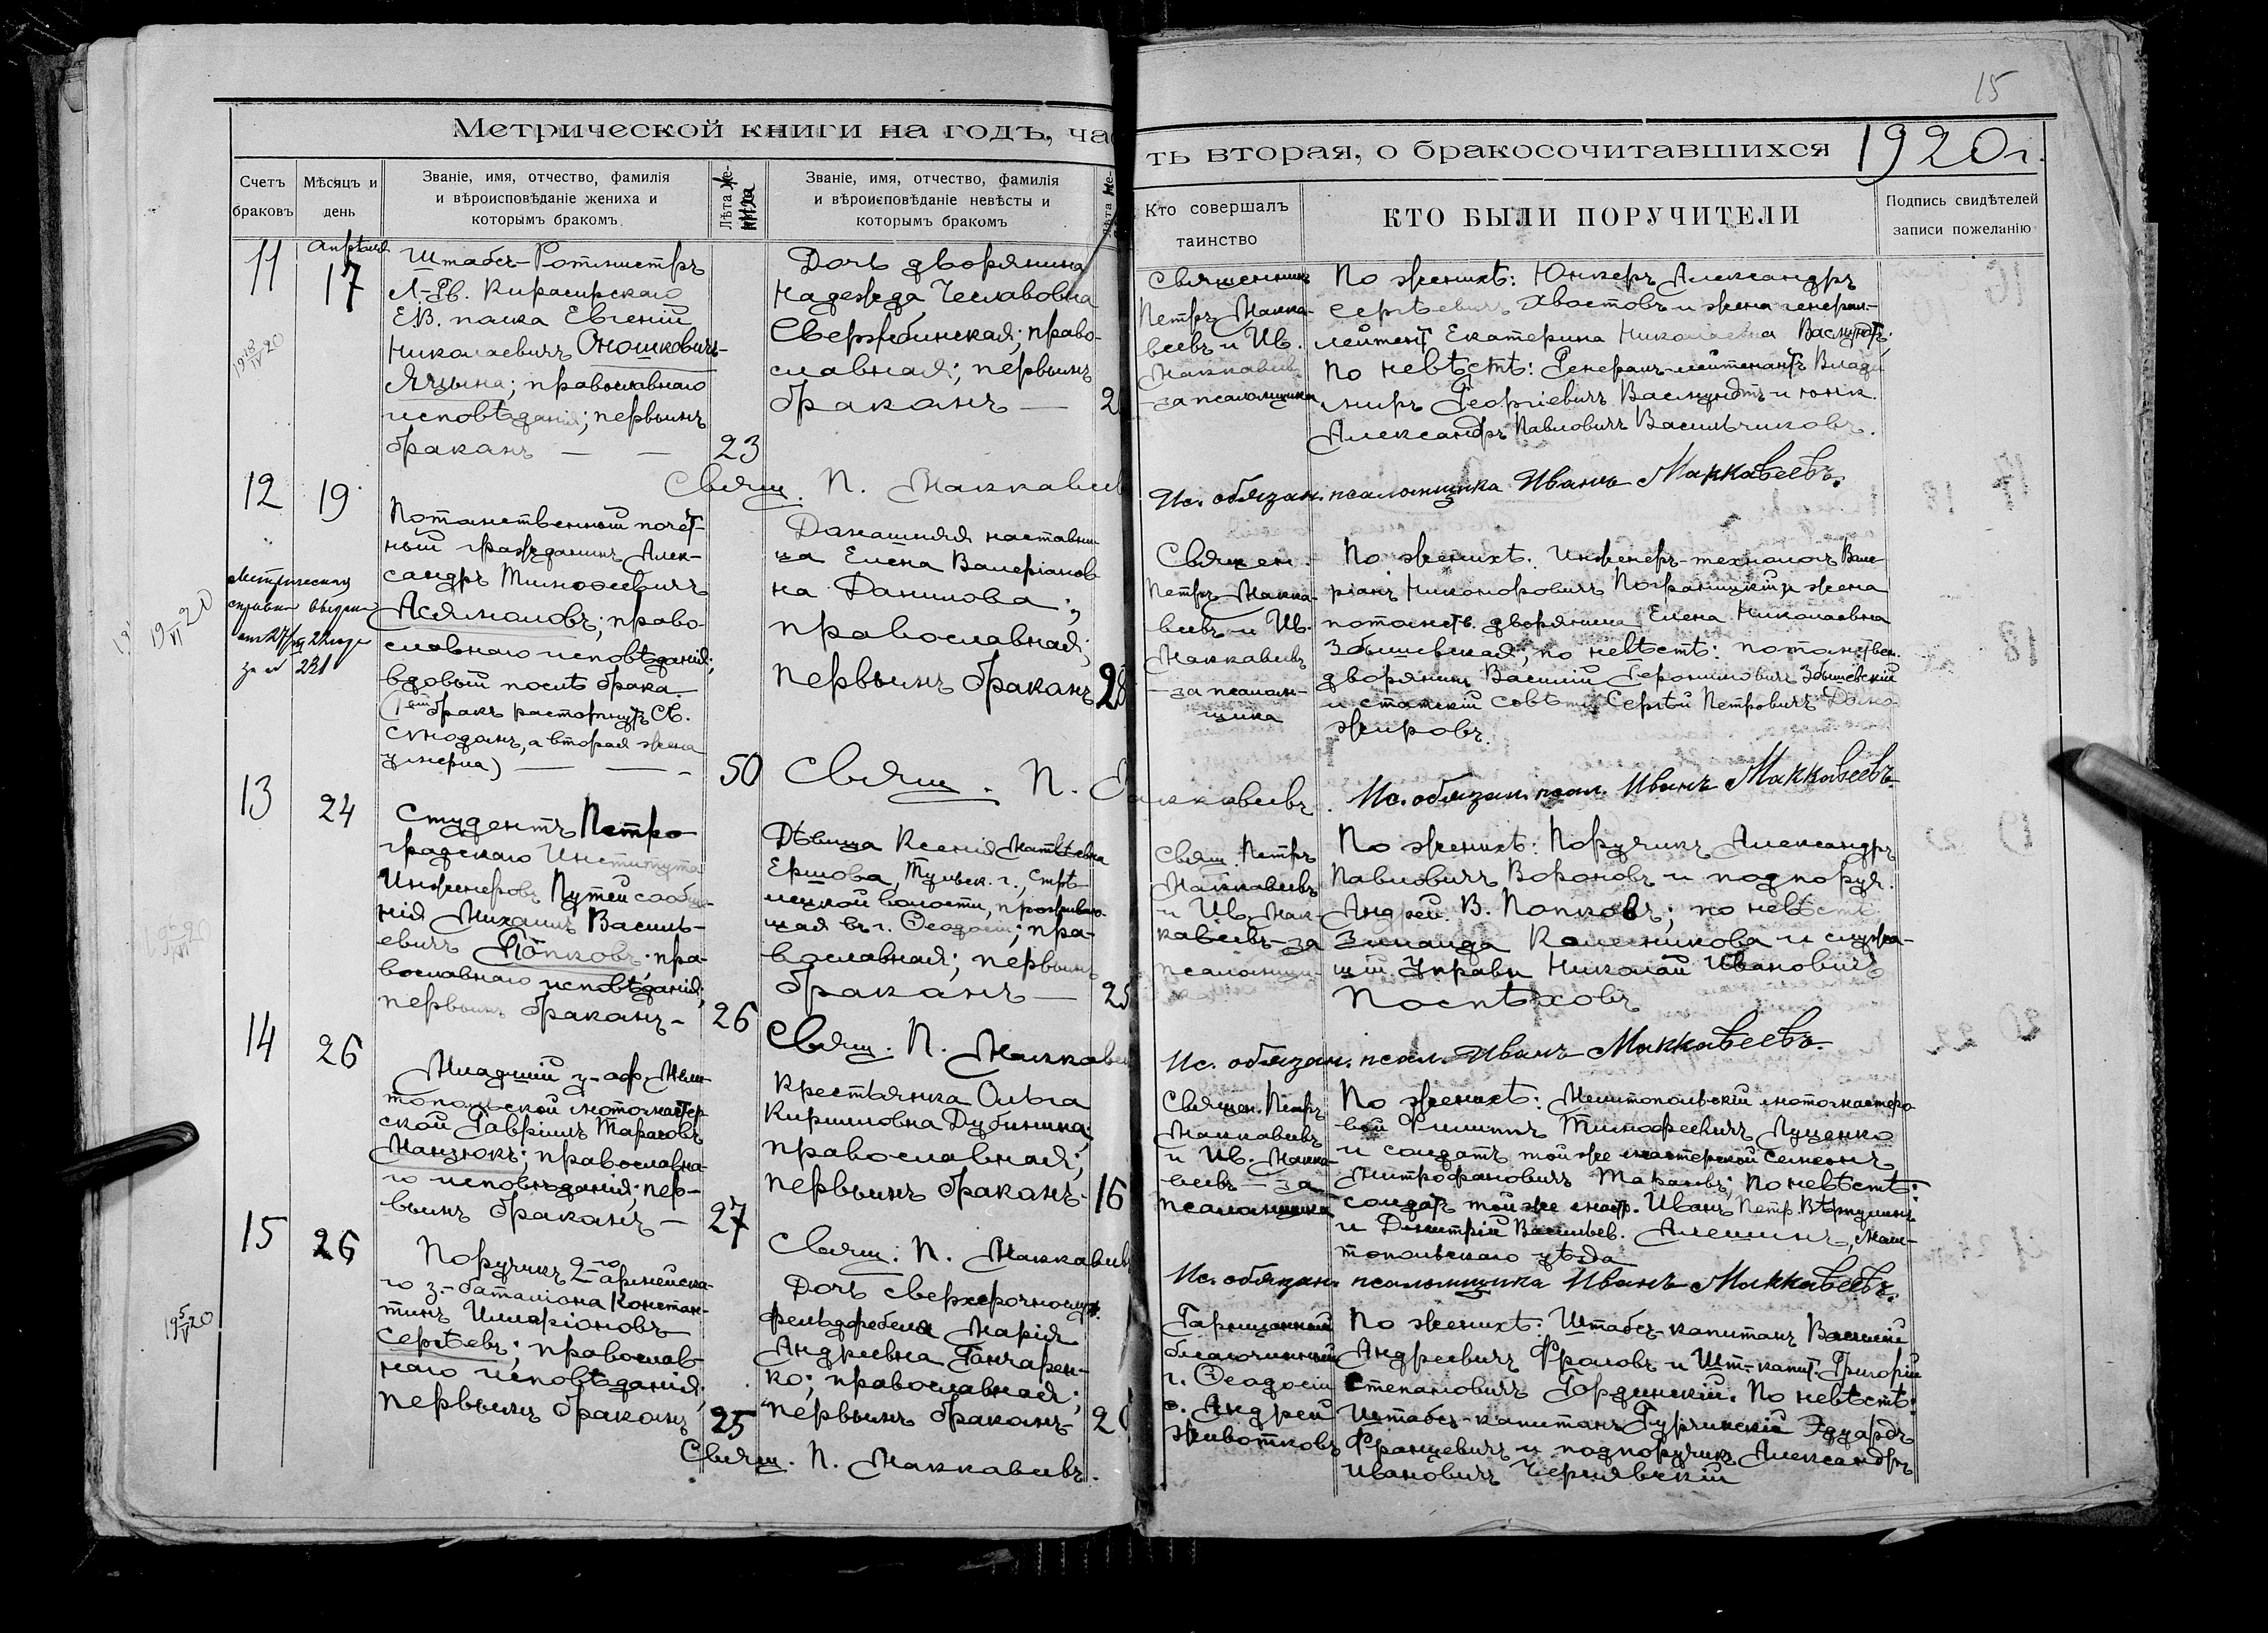 15
Метрической книги на годъ, час
ть вторая, о бракосочитавшихся 1920 г.
Счетъ браковъ
Мѣсяцъ и день
Званіе, имя, отчество, фамилія
и вѣроисповѣданіе жениха и
которымъ бракомъ.
Лѣта же-
ниха
Званіе, имя, отчество, фамилія
и вѣроисповѣданіе невѣсты и
которымъ бракомъ
Кто совершалъ
таинство
КТО БЫЛИ ПОРУЧИТЕЛИ
Подпись свидѣтелей
записи пожеланію
11
Апрѣля
17
Штабсъ-Ротмистръ
Л-Гв. Кирасирскаго
Е.В. полка Евгеній
Николаевичъ Оношковичъ-
Яцына; православнаго
исповѣданія; первымъ
бракомъ — —
23
Дочь дворянина
Надежда Чеславовна
Свержбинская; право-
славная; первымъ
бракомъ —
2
Священникъ
Петръ Макка-
веевъ и Ив.
Маккавеев.
— за псаломщика
По женихѣ: Юнкеръ Александръ
Сергѣевичъ Хвостовъ и жена генерал-
лейтент Екатерина Николаевна Васмундтъ;
По невѣстѣ: Генералъ-лейтенантъ Влади
миръ Георгіевичъ Васмундтъ и юнк.
Александръ Павловичъ Васильчиковъ.
Свящ. П. Маккавеев
Ис. обязан. псаломщика Иванъ Маккавеевъ.
12
19
Потомственный почет-
ный гражданинъ Алек-
сандръ Тимофеевичъ
Асямоловъ; право-
славнаго исповѣданія;
вдовый послѣ брака.
(1ый бракъ расторгнутъ Св.
Синодомъ, а вторая жена
умерла) — — -
50
Домашняя наставни-
ца Елена Валеріанов-
на Данилова;
православная;
первымъ бракомъ
28
Священ.
Петръ Макка-
веевъ и Ив.
Маккавеевъ
— за псалом-
щика
По женихѣ: Инженеръ-технологъ Вале-
ріанъ Никаноровичъ Пограницкій и жена
потомств. дворянина Елена Николаевна
Збышевская; по невѣстѣ: потомствен.
дворянинъ Василій Геронимовичъ Збышевскій
и статскій совѣтн. Сергѣй Петровичъ
жировъ.
Метрическая
справка выдана
за № 221
Свящ. П. Маккавеевъ.
Ис. обязан. псал. Иванъ Маккавеевъ.
13
24
Студентъ Петро-
градскаго Института
Инженеровъ Путей сообще-
нія Михаилъ Василь-
евичъ Попковъ; пра-
вославнаго исповѣданія;
первымъ бракомъ -
26
Дѣвица Ксенія Матвѣевна
Ершова, Тульск. г., Стрѣ-
лецкой волости, прожива-
щая въ г. Ѳеодосіи; пра-
вославная; первымъ
бракомъ —
25
Свящ. Петръ
Маккавеевъ
и Ив. Мак-
кавеевъ-за
псаломщи-
ка
По женихѣ: Поручикъ Александръ
Павловичъ Вороновъ и подпоруч.
Андрей В. Попковъ; по невѣстѣ
Зинаида Колесникова и служа-
щій Управы Николай Ивановичъ
Поспѣховъ
Свящ. П. Маккавеев
Ис. обязан. псал. Иванъ Маккавеевъ.
14
26
Младшій у-оф. Мели-
топольской мотомастер-
ской Гавріилъ Тарасовъ
Манзюкъ; православна-
го исповѣданія; пер-
вымъ бракомъ —
27
Крестьянка Ольга
Кирилловна Дубинина;
православная;
первымъ бракомъ-
16
Священ. Петръ
Маккавеевъ
и Ив. Макка-
веевъ — за
псаломщика
По женихѣ: Мелитопольскій мотомастеро-
вой Филиппъ Тимофеевичъ Луценко
и солдатъ той же мастерской Семенъ
Митрофановичъ Тарановъ; по невѣстѣ:
солдатъ той же мастр. Иванъ Петр.
и Дмитрій Васильев. Алешинъ, Мели-
топольскаго уѣзда
Свящ. П. Маккавеев
Ис. обязан. псаломщика Иванъ Маккавеевъ.
15
26
Поручикъ 2-го армейска-
го з.-баталіона Констан-
тинъ Иларіоновъ
Сергѣевъ; православ-
наго исповѣданія;
первымъ бракомъ
25
Дочь сверхсрочнослуж.
фельдфебеля Марія
Андреевна Ганчарен-
ко; православная;
первымъ бракомъ-
2
Гарнизонный
благочинный
г. Ѳеодосіи
о. Андрей
Животковъ
По женихѣ: Штабсъ-капитанъ Василій
Андреевичъ Фроловъ и Шт-капит. Григорій
Степановичъ Гординскій. По невѣстѣ:
Штабсъ-капитанъ Гурчинскій Эдуардъ
Францевичъ и подпоручикъ Александръ
Ивановичъ Чернявскій
Свящ. П. Маккавеевъ.